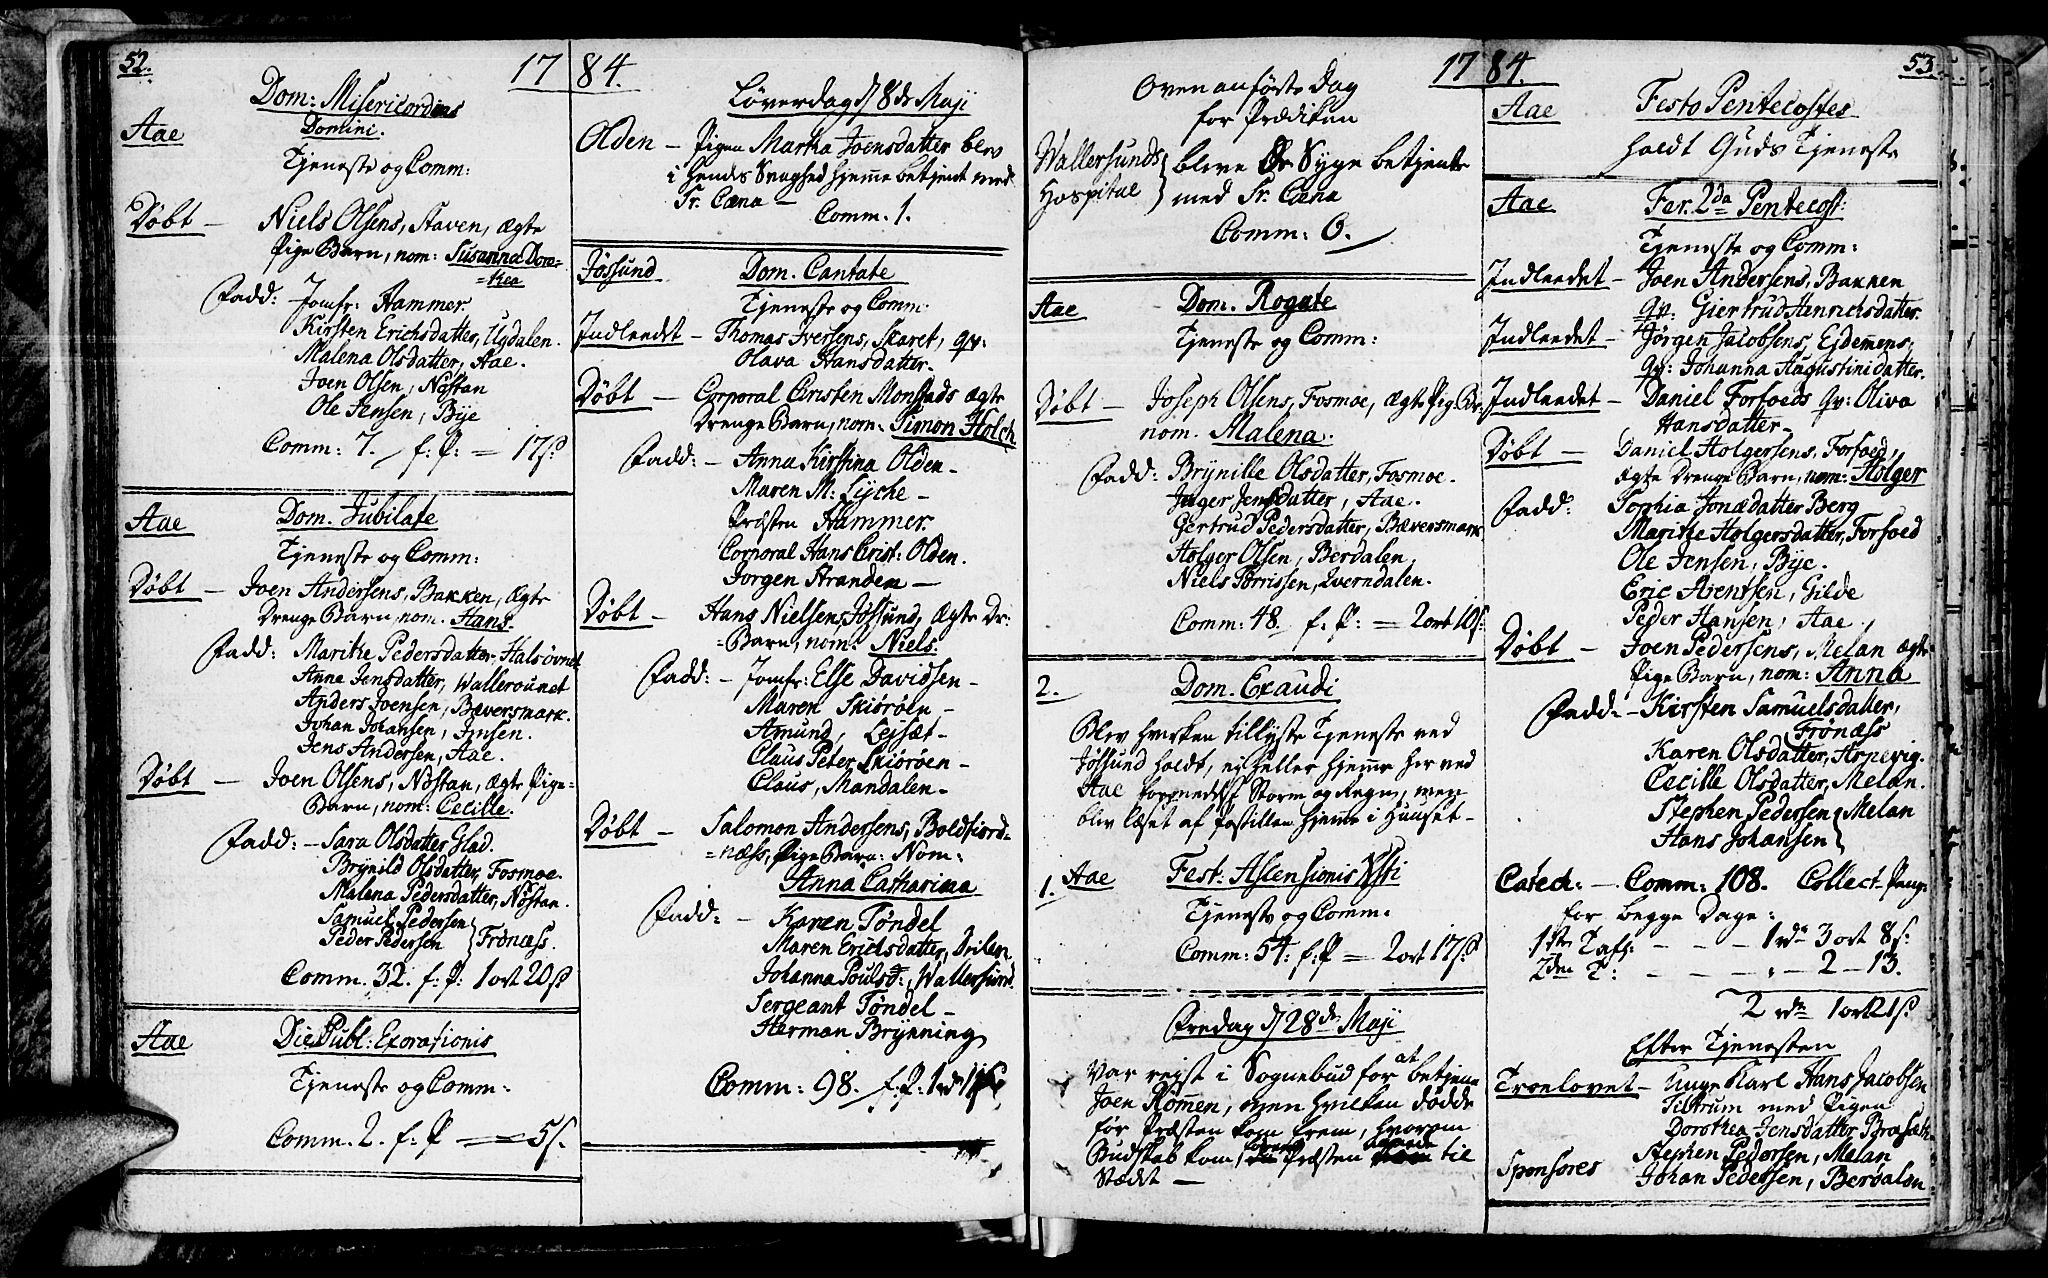 52.
17
Dom: Misericordias
Aae
Domini.
Tjeneste og Comm:
Døbt — Niels Olsens, Staven, ægte
Pige Barn, nom: Susanna Doro-
=thea
Fadd: Jomfr: Hammer
Kirsten Erichsdatter, Ugdalen.
Malena Olsdatter, Aae.
Joen Olsen, Nøstan
Ole Jensen, Bye
Comm: 7. f: P: = 17 s
Aae
Dom. Jubilate
Tjeneste og Comm:
Døbt — Joen Andersens, Bakken, ægte
Drenge Barn, nom. Hans.
Fadd: Marithe Pedersdatter, Halsøvnet
Anne Jensdatter, Wallerounet
Anders Joensen, Bæversmark.
Johan Johansen, Imsen.
Jens Andersen, Aae.
Døbt — Joen Olsens, Nøstan, ægte Pige-
Barn, nom: Cecille.
Fadd: — Sara Olsdatter Glad.
Brynild Olsdatter, Fosmoe.
Malena Pedersdatter, Nøstan.
Samuel Pedersen
Peder Pedersen } Frønæss.
Comm. 32. f: P: 1 ort 20 s
Aae
Die Publ: Exorationis
Tjeneste og Comm:
Comm. 2. f: P == 5 s.
84.
Løverdag d 8de Maji
Olden — Pigen Martha Joensdatter blev
i hendes Svaghed hjemme betjent med
Sr. Cæna —
Comm. 1.
Jøssund
Dom. Cantate
Tjeneste og Comm:
Indleedet — Thomas Iversens, Skaret, qv:
Olava Hansdatter.
Døbt — Corporal Christen Monstads ægte
Drenge Barn, nom. Simon Holch
Fadd: — Anna Kirstina Olden —
Maren M: Lyche —
Præsten Hammer.
Corporal Hans Christ: Olden.
Jørgen Stranden —
Døbt — Hans Nielsen, Jøssund, ægte Dr:
Barn, nom: Niels.
Fadd: — Jomfr: Else Davidsen —
Maren Skiørøen —
Amund, Lejsæt —
Claus Peter Skiørøen —
Claus, Mandalen —
Døbt — Salomon Andersens, Boldfiord-
=næss, Pige Barn: Nom:
Anna Catharina
Fadd: — Karen Tøndel
Maren Erichsdatter,
Johanna Poulsd:, Wallersund.
Sergeant Tøndel —
Herman Brynning
Comm: 98. f: P: 1 rd
17
Ovenanførte Dag
for Prædiken
Wallersunds
Hospital } bleve De Syge betjente
med Sr. Cæna
Comm: 6.
Aae
Dom. Rogate
Tjeneste og Comm:
Døbt — Joseph Olsens, Fosmoe, ægte Pige Br.
nom. Malena.
Fadd: Brynille Olsdatter, Fosmoe.
Inger Jensdatter, Aae.
Gertrud Pedersdatter, Bæversmark
Holger Olsen, Berdalen.
Niels Torrissen, Qverndalen.
Comm: 48. f: P: = 2 ort 10 s:
2.
Dom. Exaudi
Blev hverken tillyste Tjeneste ved
Jøssund holdt, ej heller hjemme her ved
Aae formedelst Storm og Regn, men
blev læset af Postillen hjemme i Huuset —
1. Aae
Fest: Ascensionis Xsti
Tjeneste og Comm:
Comm: 54: f: P = 2 ort 17 s
Fredag d 28de Maji
Var rejst i Sognebud for at betjene
Joen Rømen, men hvilken døde
før Præsten kom frem, hvorom
Budskab kom, Præsten til
Stædet —
84.
53
Aae
Festo Pentecostes
holdt Guds Tjeneste
Aae
Fer. 2da Pentecost:
Tjeneste og Comm:
Indleedet — Joen Andersens, Bakken
qv: Giertrud Henrichsdatter.
Indleedet — Jørgen Jacobsens, Eidemens,
qv: Johanna Augustinidatter.
Indleedet — Daniel Forfoeds qv: Oliva
Hansdatter —
Døbt — Daniel Holgersens, Forfoed,
ægte Drenge Barn, nom: Holger
Fadd: Sophia Jonædatter Berg
Marithe Holgersdatter, Forfoed
Ole Jensen, Bye.
Eric Arentsen, Gilde
Peder Hansen, Aae.
Døbt — Joen Pedersens, Melan ægte
Pige Barn, nom: Anna
Fadd: — Kirsten Samuelsdatter,
Frønæss
Karen Olsdatter, Arnevig.
Cecille Olsdatter, Melan.
Stephen Pedersen
Hans Johansen } Melan
Catech: — Comm: 108. Collect-Penge
for begge Dage:
1ste Tafl: — — — 1 rd 3 ort 8 s:
2den T: — — — „ — 2 — 13.
2 rd 1 ort 21 s
Efter Tjenesten
Troelovet — Unge Karl Hans Jacobsen
Tiltrum med Pigen
Dorothea Jensdatter
Sponsores
Stephen Pedersen, Melan
Johan Pedersen, Berdalen